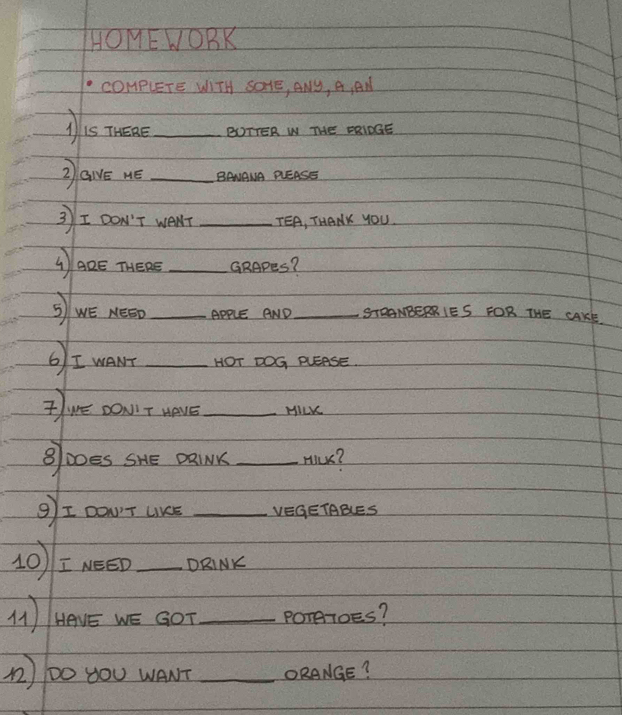 HOMEWORK
• COMPLETE WITH SOME, ANY, A, AN
1) IS THERE ______ BUTTER IN THE FRIDGE
2) GIVE ME ______ BANANA PLEASE
3) I DON'T WANT ______ TEA, THANK YOU.
4) ARE THERE ______ GRAPES?
5) WE NEED ______ APPLE AND ______ STRANBERRIES FOR THE CAKE.
6) I WANT ______ HOT DOG PLEASE.
7) WE DON'T HAVE ______ MILK
8) DOES SHE DRINK ______ MILK?
9) I DON'T LIKE ______ VEGETABLES
10) I NEED ______ DRINK
11) HAVE WE GOT ______ POTATOES?
12) DO YOU WANT ______ ORANGE?